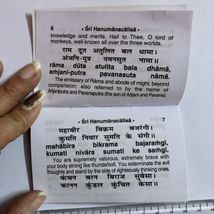 6 - Śrī Hanumānacālīsā -
knowledge and merits. Hail to Thee, O lord of
monkeys, well-known all over the three worlds.
राम दूत अतुलित बल धामा।
अंजनि-पुत्र पवनसुत नामा॥
rāma dūta atulita bala dhāmā,
aṁjani-putra pavanasuta nāmā.
The emissary of Rāma and abode of might, beyond
comparison; also referred to by the name of
Añjaniputra and Pavanaputra (the son of Añjanī and Pavana).
- Śrī Hanumānacālīsā - 7
महाबीर बिक्रम बजरंगी।
कुमति निवार सुमति के संगी॥
mahābīra bikrama bajaraṁgī,
kumati nivāra sumati ke saṁgī.
You are supremely valorous, extremely brave with
your body strong like thunderbolt. You exterminate the evil
thoughts and stand by the side of righteously thinking ones.
कंचन बरन बिराज सुबेसा।
कानन कुंडल कुंचित केसा॥